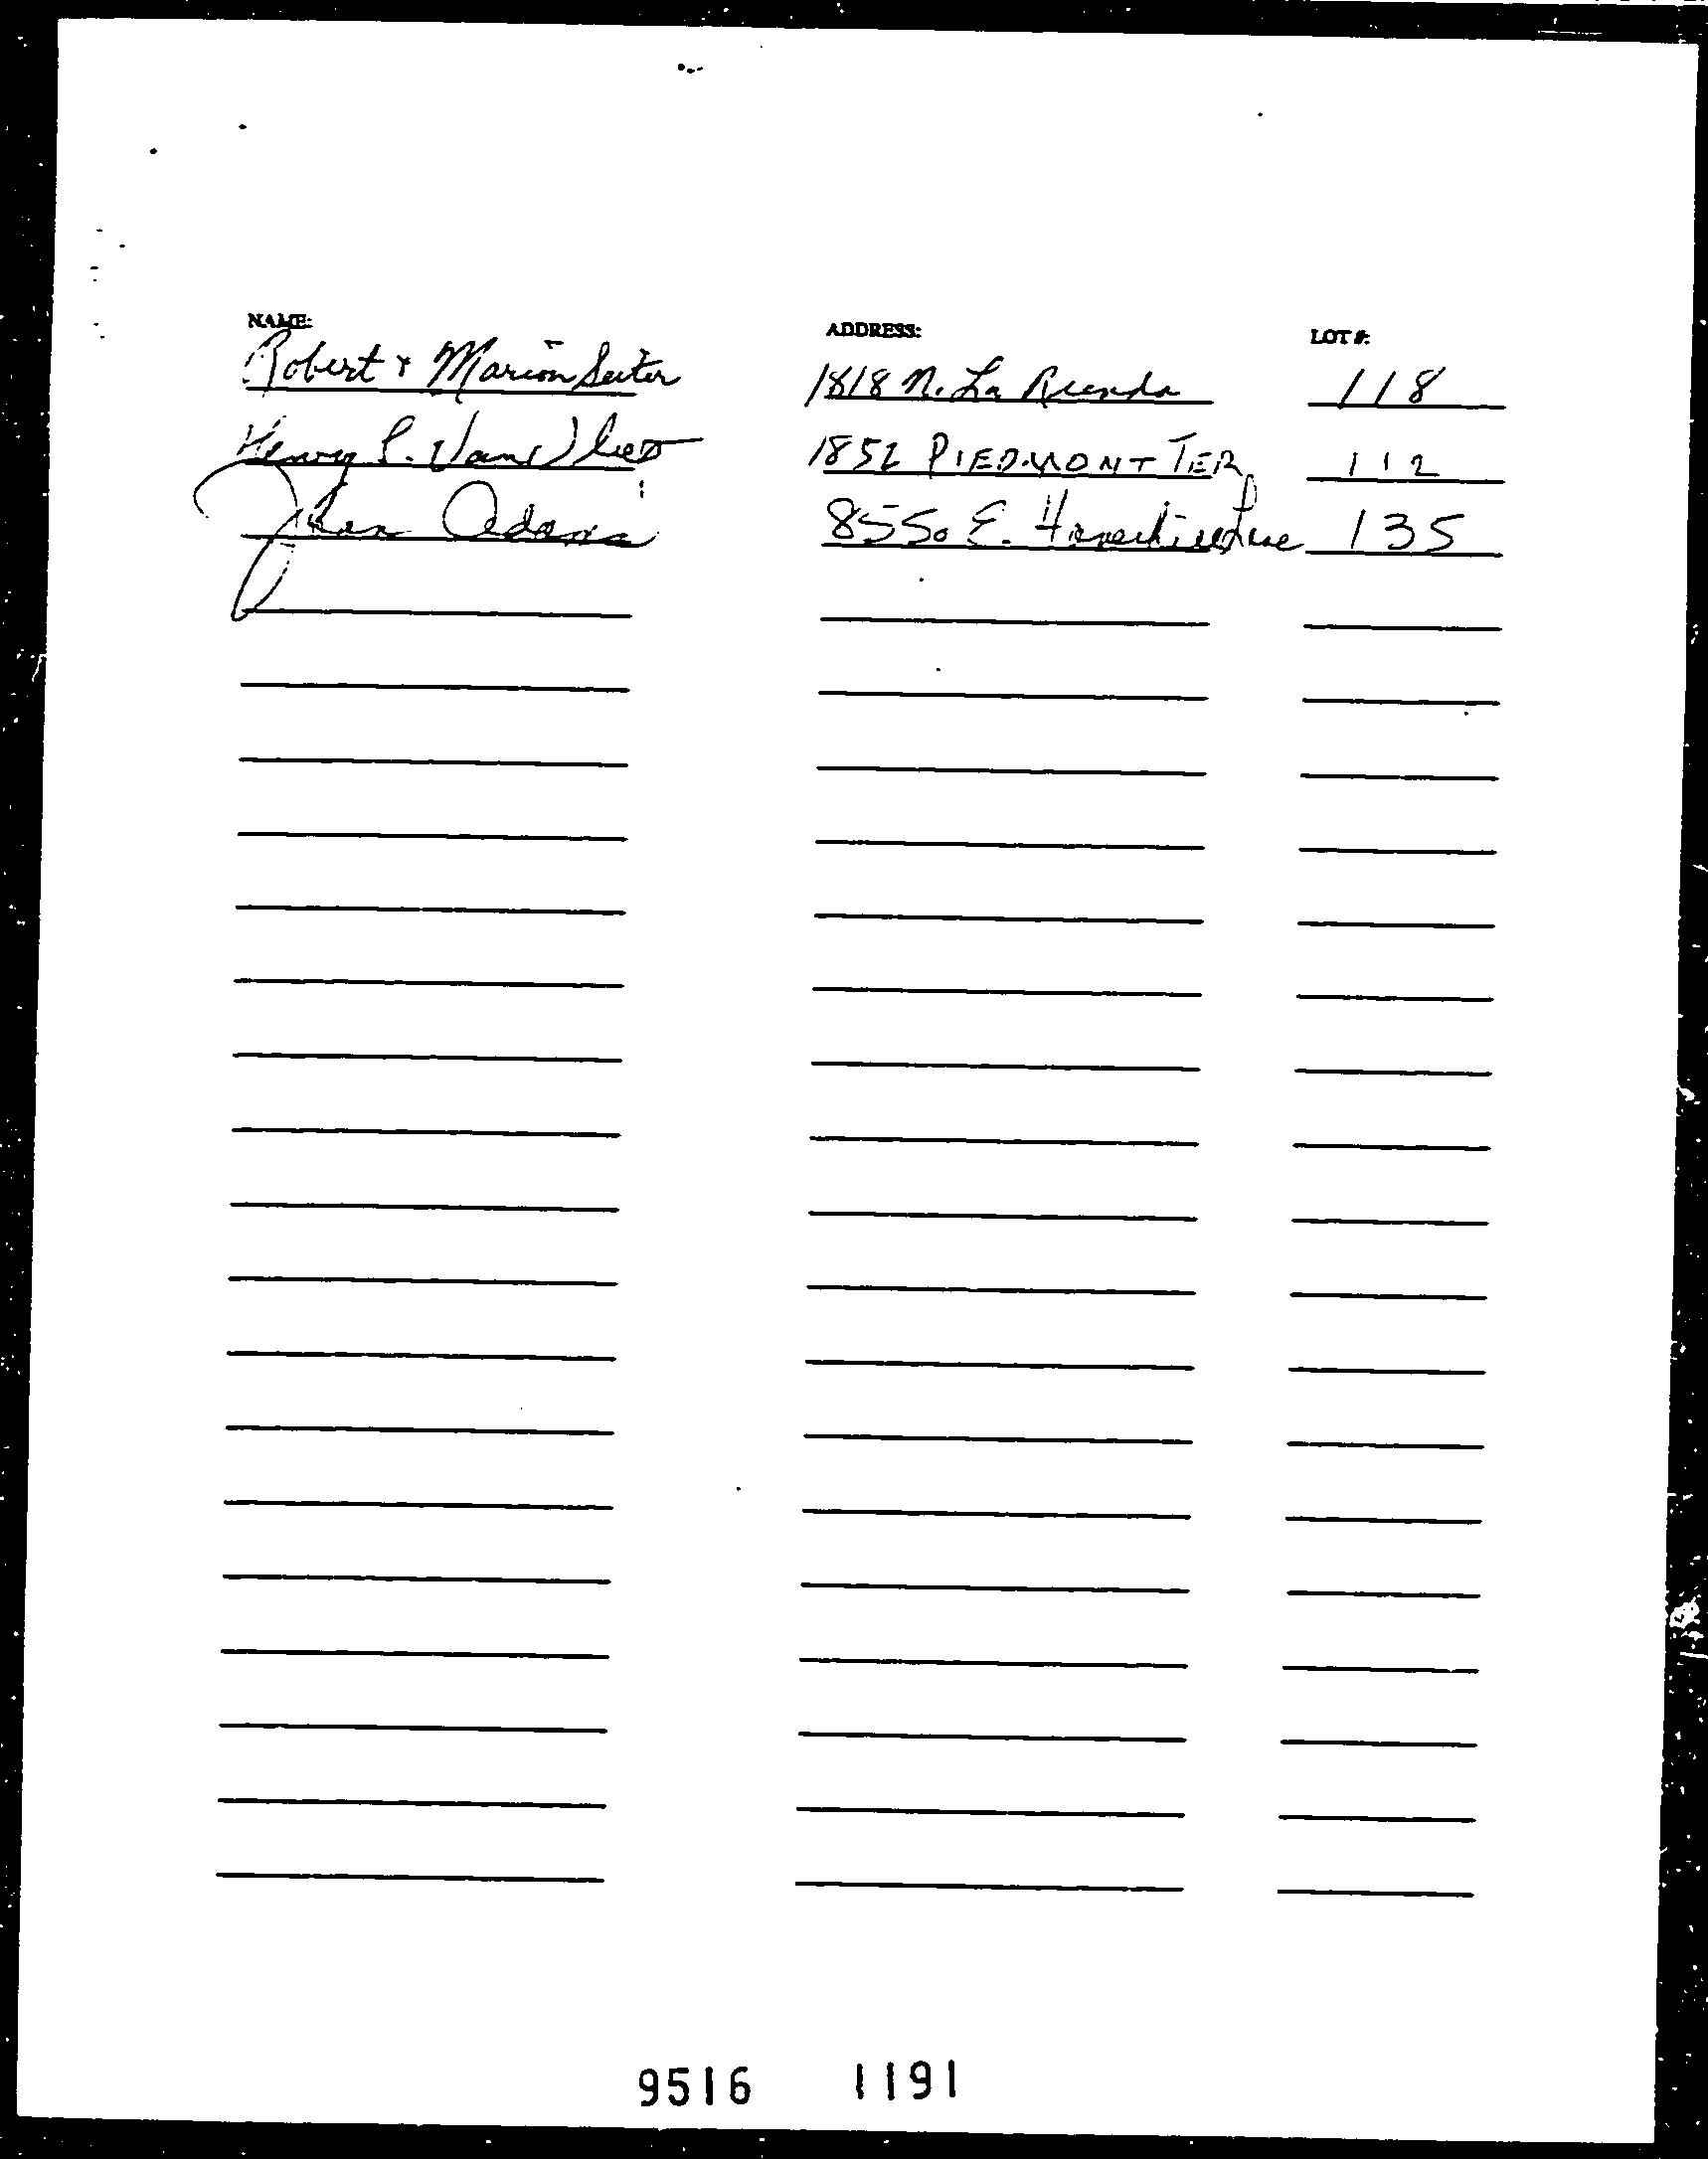 NAME: ADDRESS: LOT #:
Robert & Marion Seiter 1818 N. La Rienda 118
Henry P. Van Vliet 1852 PIEDMONT TER 112
Adams 8550 E. 135
9516 1191